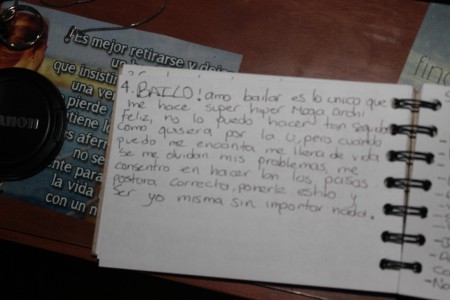 ¡Es mejor retirarse y dejar
un b
que insistir
una ve
pierde
tiene l
s afer
no se
nte para
la vida
con un n
canon
fin
4. BAILO! amo bailar es lo unico que
me hace super hiper mega archi
feliz, no lo puedo hacer tan seguido
como quisiera por la U, pero cuando
puedo me encanta, me llena de vida
se me olvidan mis problemas, me
consentro en hacer bn los pasos,
postura correcta, ponerle estilo y
ser yo misma sin importar nada.